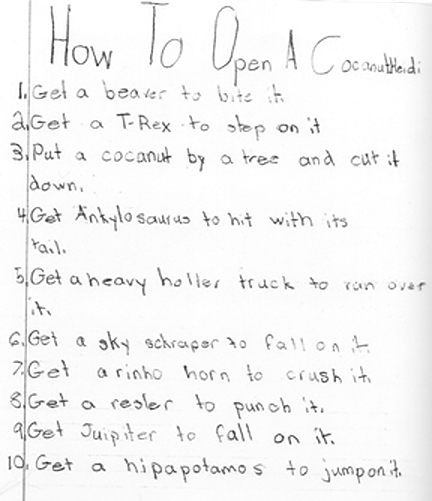 How To Open A Cocanut Heidi
1. Get a beaver to bite it
2. Get a T-Rex to step on it
3. Put a cocanut by a tree and cut it
down.
4. Get Ankylosaurus to hit with its
tail.
5. Get a heavy holler truck to run over
it.
6. Get a sky schraper to fall on it.
7. Get a rinho horn to crush it.
8. Get a resler to punch it.
9. Get Juipiter to fall on it.
10. Get a hipapotamos to jump on it.